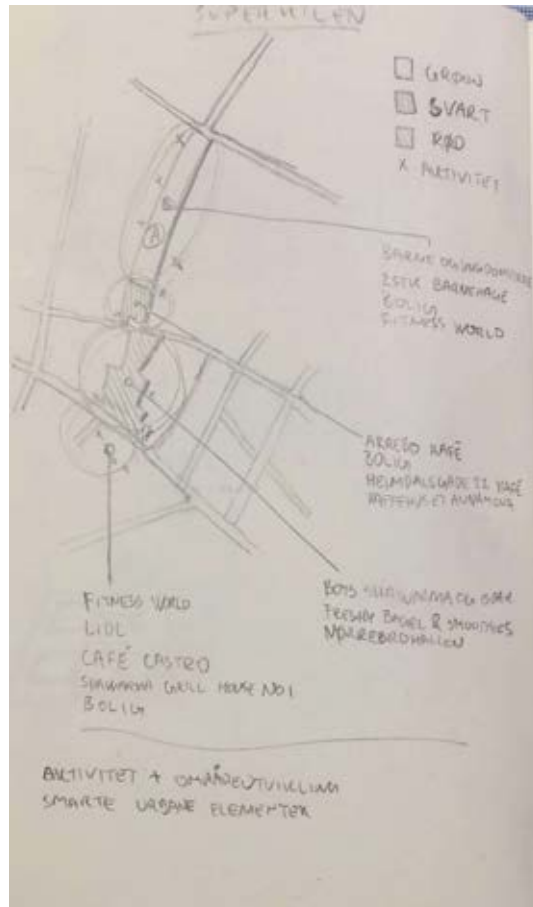 SUPERKILEN
GRØNN
SVART
RØD
X AKTIVITET
BARNE OG UNGDOM
2STK BARNEHAGE
BOLIG
FITNESS WORLD
ARREBO KAFÉ
BOLIG
HEIMDALSGADE 22 KAFÉ
BOYS SHAWARMA OG BAR
FRESHY BAGEL & SMOOTHIES
NØRREBROHALLEN
FITNESS WORLD
LIDL
CAFÉ CASTRO
SHAWARMA GRILL HOUSE NO1
BOLIG
AKTIVITET + OMRÅDEUTVIKLING
SMARTE URBANE ELEMENTER